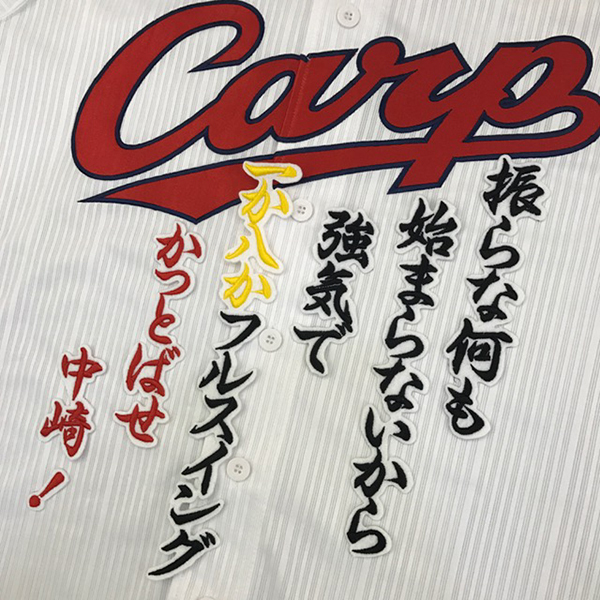 Carp
振らな何も
始まらないから
強気で
一か八かフルスイング
かっとばせ
中崎！